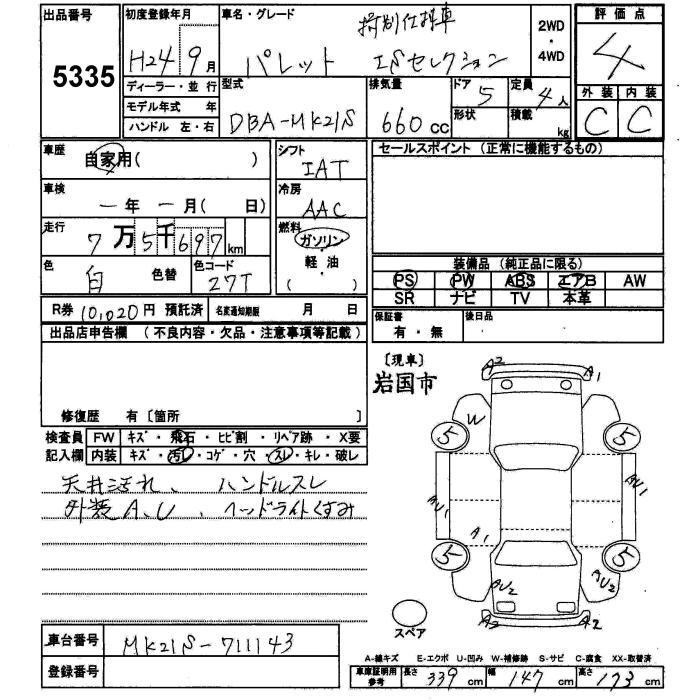 出品番号
5335
初度登録年月
H24 9月
ディーラー・並行
モデル年式 年
ハンドル 左・右
車名・グレード
特別仕様車
パレット ISセレクション
2WD
・
4WD
型式
DBA-MK21S
排気量
660cc
ドア 5
形状
定員 4人
積載 kg
評価点
4
外装 内装
C C
車歴
自家用( )
車検
ー年 ー月( 日)
走行
7万5千697km
色
白 色替
色コード
27T
シフト
IAT
冷房
AAC
燃料
ガソリン
・
軽油
( )
セールスポイント (正常に機能するもの)
装備品 (純正品に限る)
PS PW ABS エアB AW
SR ナビ TV 本革
保証書
有・無
後日品
R券 10,020円 預託済
名変通知期限 月 日
出品店申告欄 (不良内容・欠品・注意事項等記載)
修復歴 有〔箇所 〕
検査員
記入欄
FW キズ・飛石・ヒビ割・リペア跡・X要
内装 キズ・汚レ・コゲ・穴・スレ・キレ・破レ
天井汚れ、ハンドルスレ
外装A、U、ヘッドライトくすみ
〔現車〕
岩国市
A2
A1
W
5
5
AU1
AU1
A1
5
5
AU2
AU2
A2
A2
スペア
車台番号 MK21S-711143
登録番号
A-線キズ E-エクボ U-凹み W-補修跡 S-サビ C-腐食 XX-取替済
車庫証明用
参考
長さ 339cm 幅 147cm 高さ 173cm